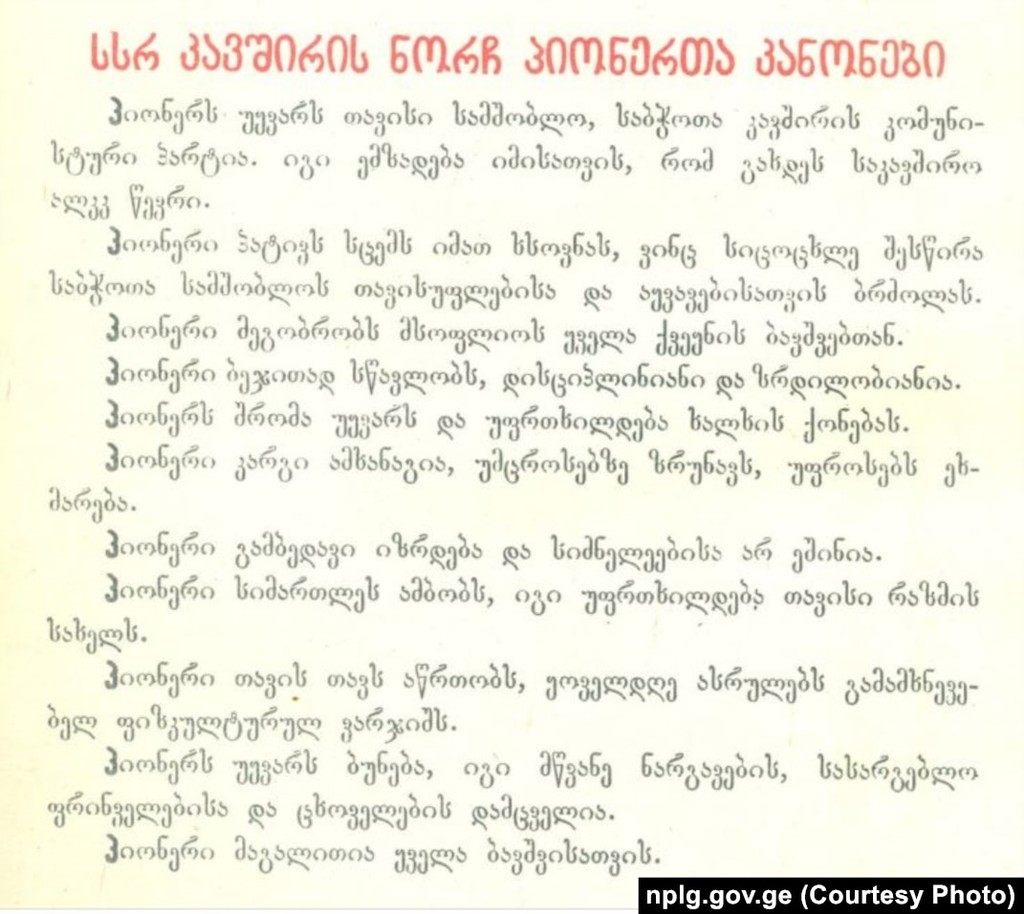 სსრ კავშირის ნორჩ პიონერთა კანონები
პიონერს უყვარს თავისი სამშობლო, საბჭოთა კავშირის კომუნი-
სტური პარტია. იგი ემზადება იმისათვის, რომ გახდეს საკავშირო
ალკკ წევრი.
პიონერი პატივს სცემს იმათ ხსოვნას, ვინც სიცოცხლე შესწირა
საბჭოთა სამშობლოს თავისუფლებისა და აყვავებისათვის ბრძოლას.
პიონერი მეგობრობს მსოფლიოს ყველა ქვეყნის ბავშვებთან.
პიონერი ბეჯითად სწავლობს, დისციპლინიანი და ზრდილობიანია.
პიონერს შრომა უყვარს და უფრთხილდება ხალხის ქონებას.
პიონერი კარგი ამხანაგია, უმცროსებზე ზრუნავს, უფროსებს ეხ-
მარება.
პიონერი გამბედავი იზრდება და სიძნელეებისა არ ეშინია.
პიონერი სიმართლეს ამბობს, იგი უფრთხილდება თავისი რაზმის
სახელს.
პიონერი თავის თავს აწრთობს, ყოველდღე ასრულებს გამამხნევე-
ბელ ფიზკულტურულ ვარჯიშს.
პიონერს უყვარს ბუნება, იგი მწვანე ნარგავების, სასარგებლო
ფრინველებისა და ცხოველების დამცველია.
პიონერი მაგალითია ყველა ბავშვისათვის.
nplg.gov.ge (Courtesy Photo)